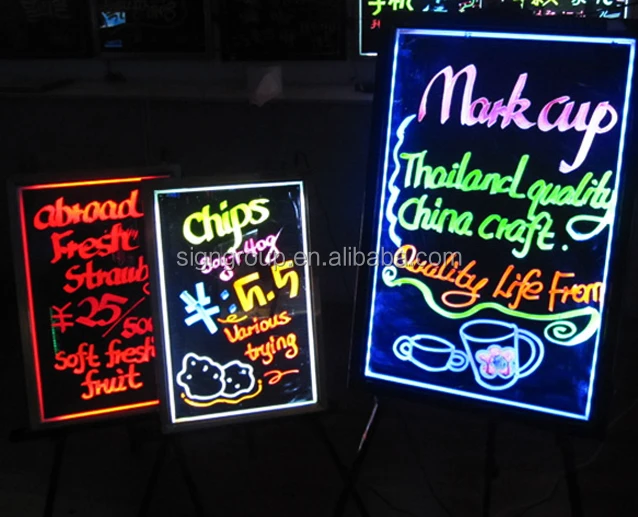 abroad
Fresh
Strawb
¥25/500
Soft fresh
fruit
chips
¥:5.5
Various
trying
Mark cup
Thailand quality
China craft.
Quality Life From
signgroup.en.alibaba.com